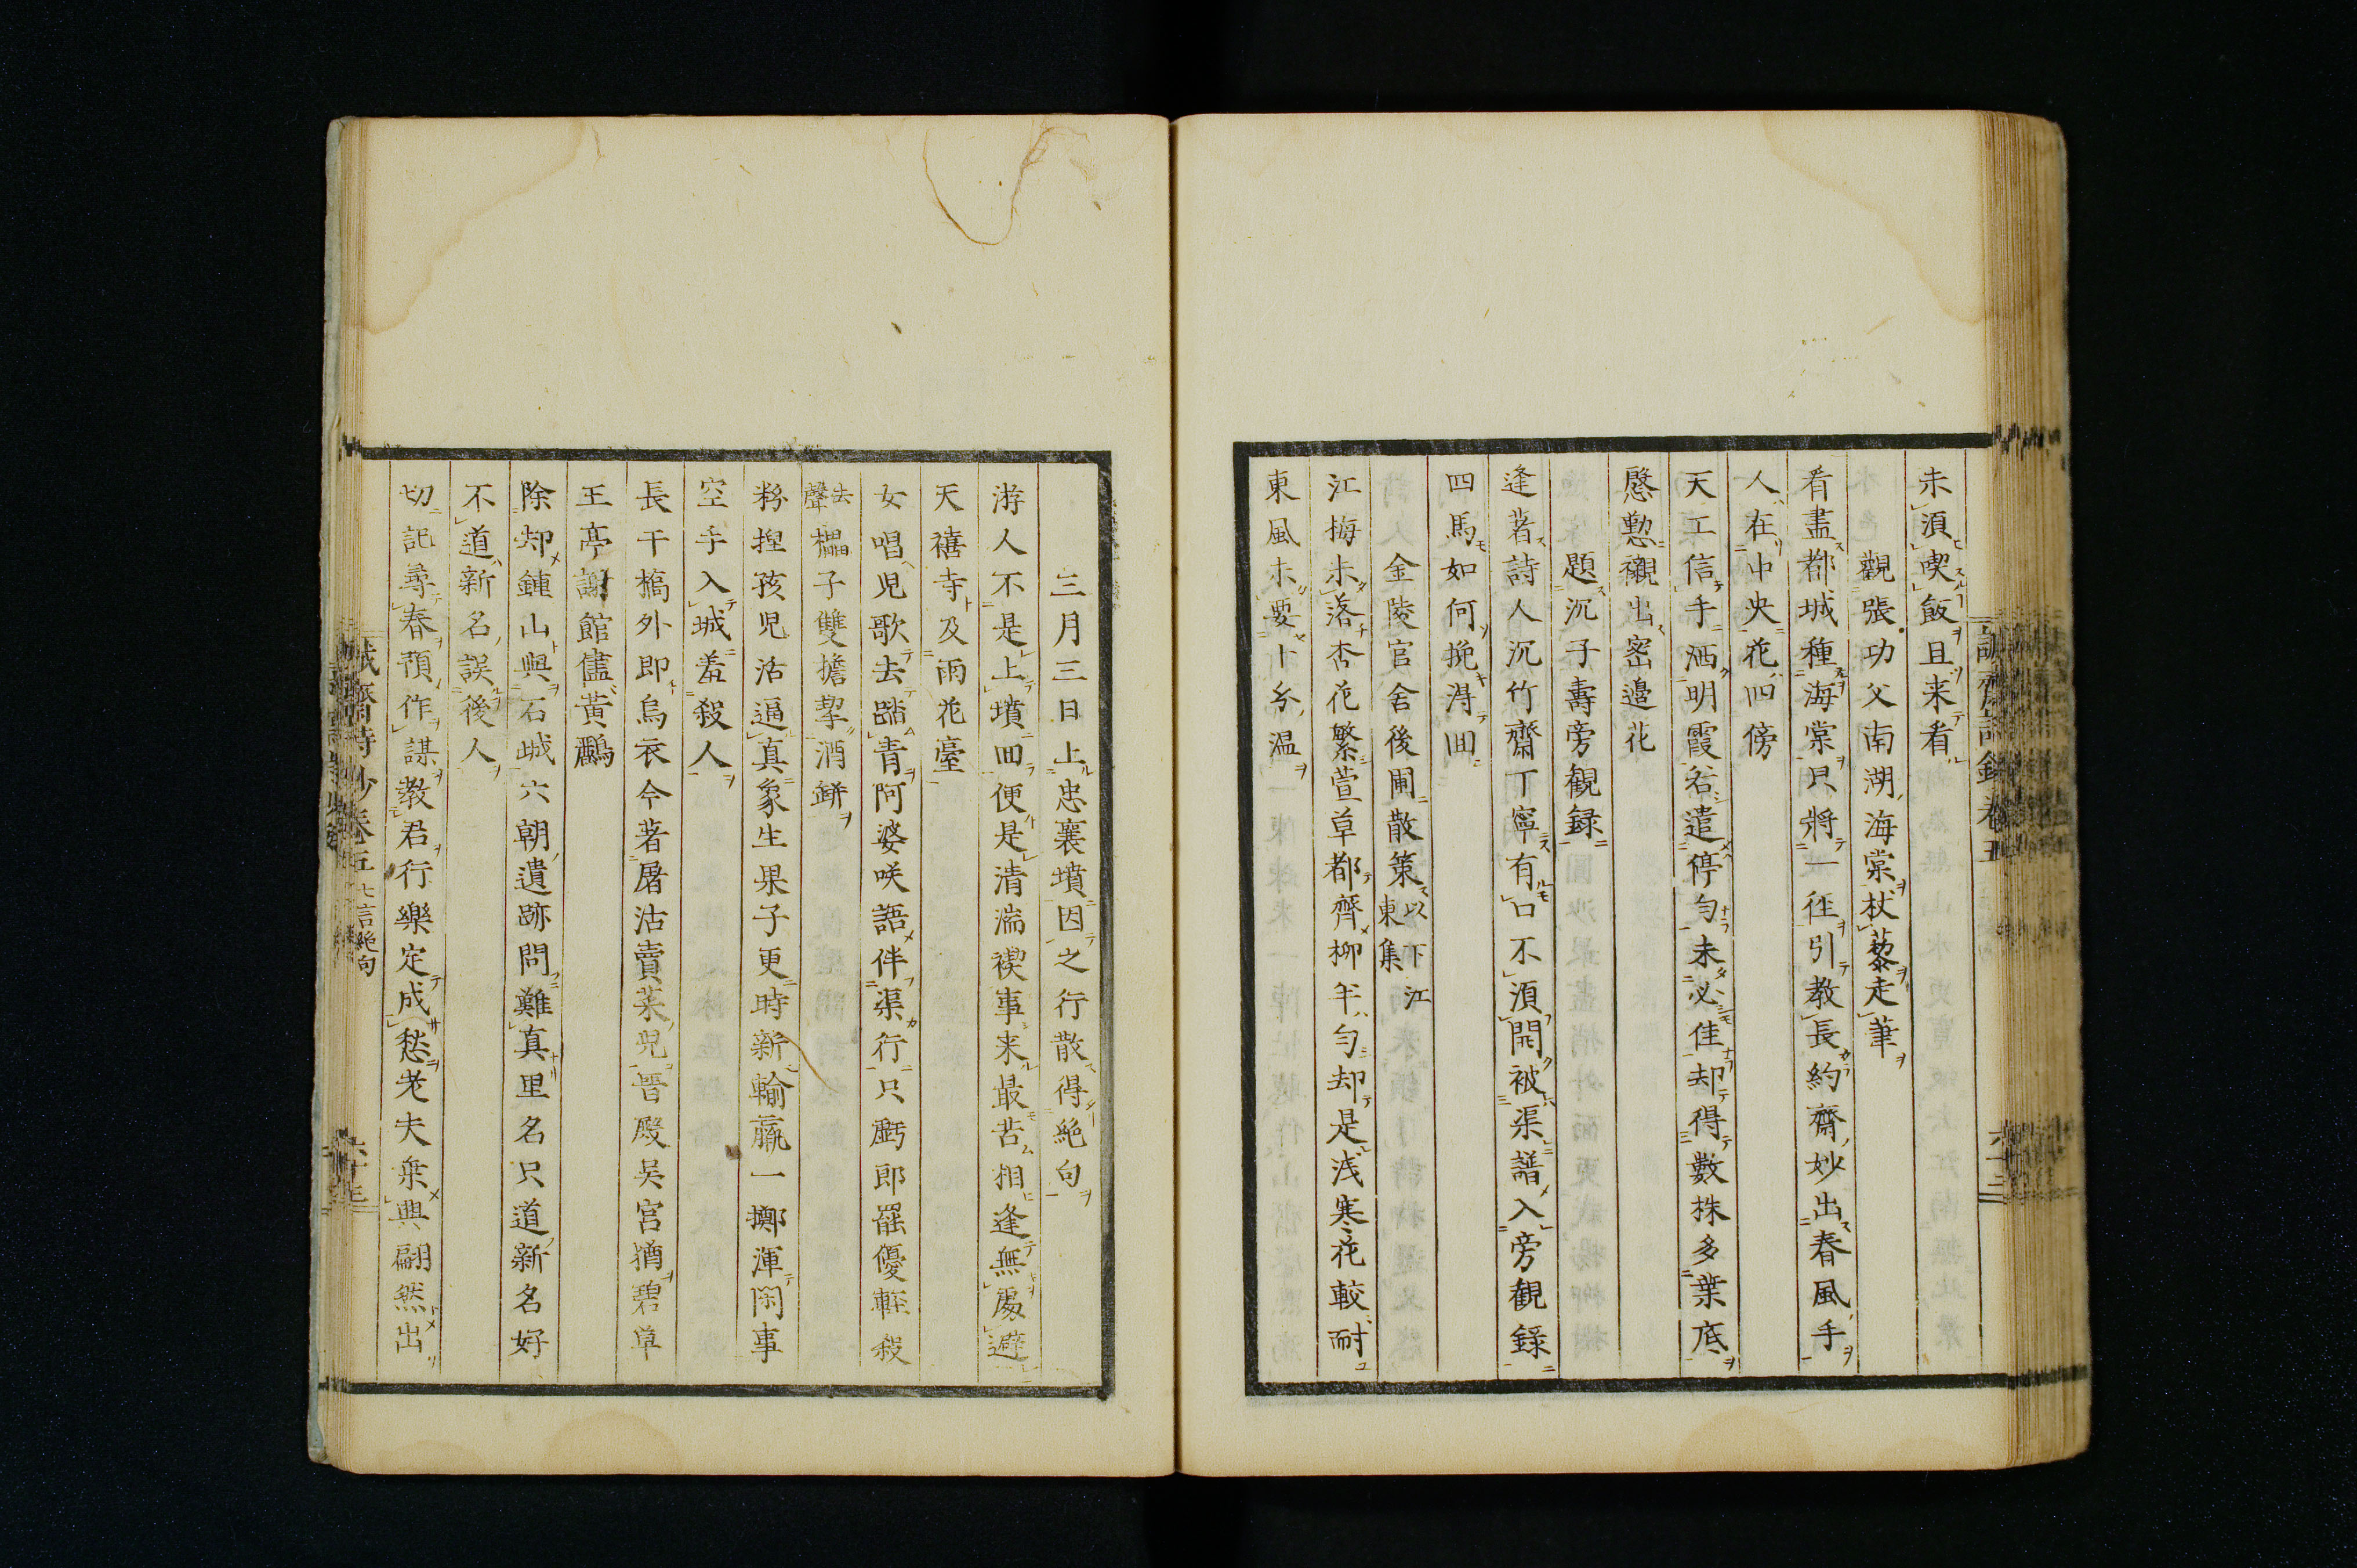 未須喫飯且来看
觀張功父南湖海棠杖藜走筆
看盡都城種海棠只將一徑引教長約齋妙出春風手
人在中央花四傍
天工信手洒明霞若遣停勻未必佳却得數株多葉底
慇懃襯出密邉花
題沉子壽旁觀録
逢著詩人沉竹齋丁寧有口不須開被渠譜入旁觀錄
四馬如何挽得囬
金陵官舍後圃散策以下江東集
江梅未落杏花繁萱草都齊柳半勻却是浅寒花較耐
東風未要十分温
三月三日上忠襄墳因之行散得絶句
游人不是上墳囬便是清湍禊事来最苦相逢無處避
天禧寺及雨花臺
女唱兒歌去踏青阿婆咲語伴渠行只虧郎罷優輕殺
去聲櫑子雙擔挈酒缾
粉捏孩児活逼真象生果子更時新輸贏一擲渾閑事
空手入城羞殺人
長干橋外即烏衣今著屠沽賣菜兒晋殿吴宫猶碧草
王亭謝館儘黄鸝
除却鍾山與石城六朝遺跡問難真里名只道新名好
不道新名誤後人
切記尋春預作謀教君行樂定成愁老夫乗興翩然出
誠齋詩鈔卷五 七言絶句